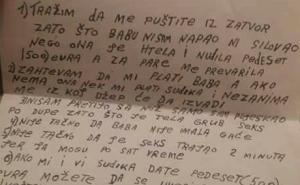 1) TRAŽIM DA ME PUŠTITE IZ ZATVOR
ZATO ŠTO BABU NISAM NAPAO NI SILOVAO
NEGO ONA JE HTELA I NUDILA PEDESET
(50) EVRA A ZA PARE ME PREVARILA
2) ZAHTEVAM DA MI PLATI BABA A AKO
NEMA ONA NEK MI PLATI SUDIJA I NEZANIMA
ME IZ KOJ DŽEP ĆE DA IZVADI
3) NISAM PRETIJO SAMO SAM JU PLJESKAO
PO DUPE ZATO ŠTO JE TELA GRUB SEKS
4) NIJE TAČNO DA BABA NIJE IMALA GAĆE
5) NIJE TAČNO DA JE SEKS TRAJAO 2 MINUTA
JER JA MOGU PO SAT VREME
6) AKO MI VI SUDIJA DATE PEDESET (50)
EVRA MOŽETE DA SE